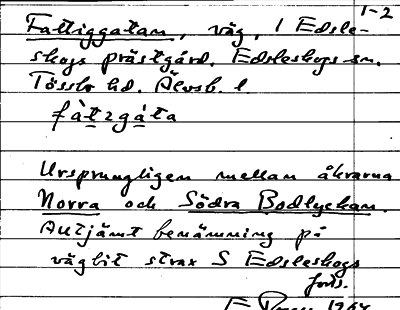 1-2
Fattiggatan, väg, i Edsle-
skogs prästgård. Edsleskogs sn.
Tössbo hd. Älvsb. l.
fàt̲zgát̲a
Ursprungligen mellan åkrarna
Norra och Södra Bodlyckan.
Alltjämt benämning på
vägbit strax S Edsleskogs
1964